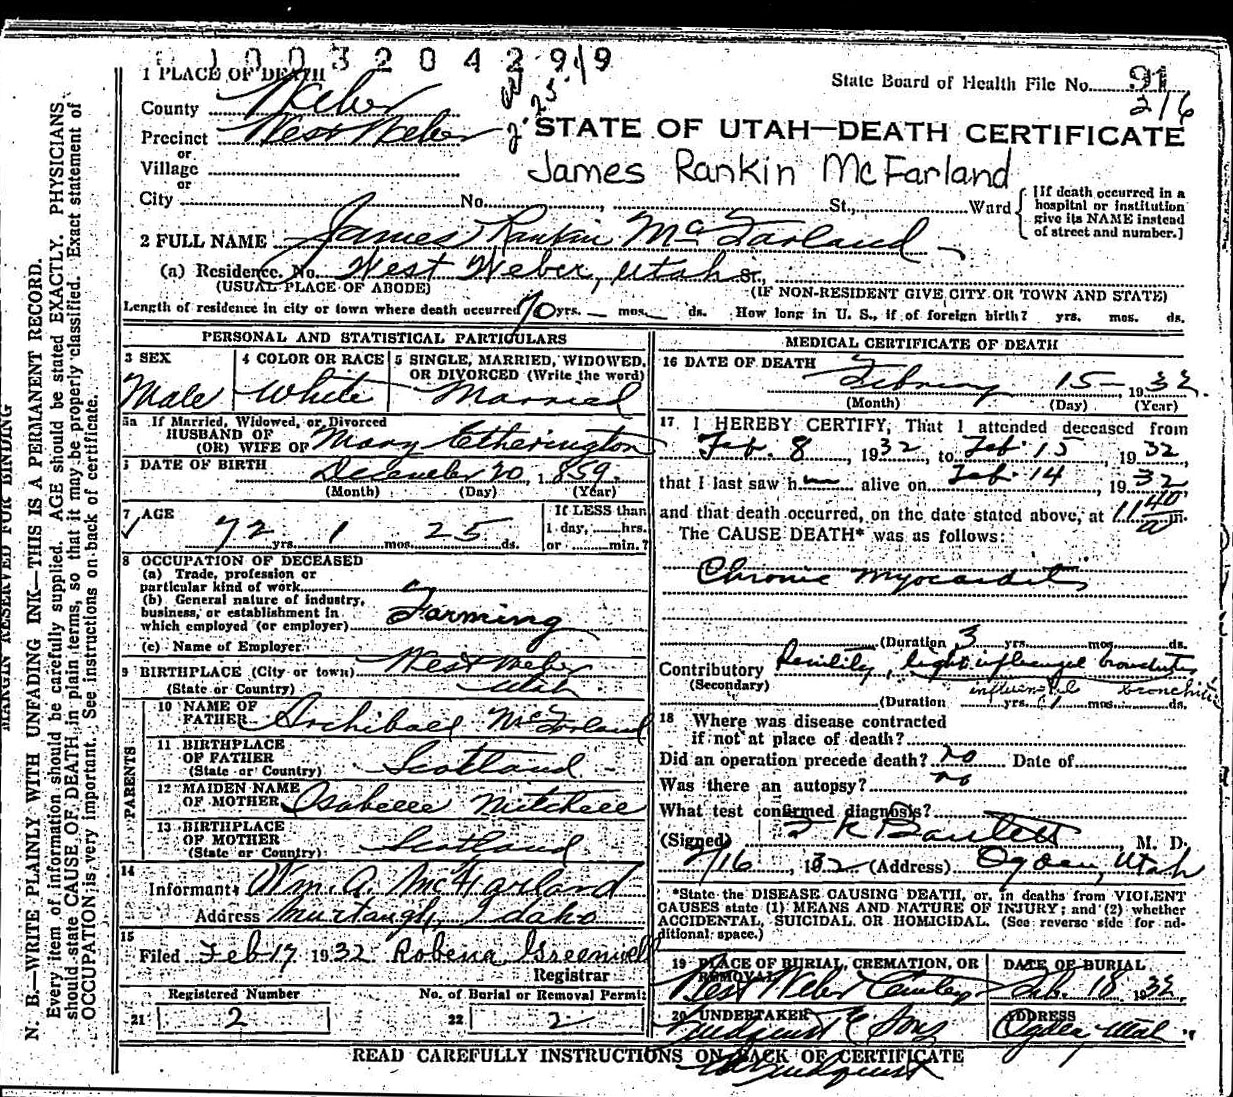 1003204299
State Board of Health File No. 91
216
1 PLACE OF DEATH
County Weber
Precinct West Weber
or
Village
or
City No. St., Ward
STATE OF UTAH—DEATH CERTIFICATE
James Rankin McFarland
[If death occurred in a
hospital or institution
give its NAME instead
of street and number.]
2 FULL NAME James Rankin McFarland
(a) Residence. No. West Weber, Utah St.,
(USUAL PLACE OF ABODE) (IF NON-RESIDENT GIVE CITY OR TOWN AND STATE)
Length of residence in city or town where death occurred 70 yrs. — mos. — ds. How long in U. S., if of foreign birth? yrs. mos. ds.
PERSONAL AND STATISTICAL PARTICULARS
3 SEX
Male
4 COLOR OR RACE
White
5 SINGLE, MARRIED, WIDOWED,
OR DIVORCED (Write the word)
Married
5a If Married, Widowed, or Divorced
HUSBAND OF
(OR) WIFE OF Mary Etherington
6 DATE OF BIRTH
December 20, 1859.
(Month) (Day) (Year)
7 AGE
72 yrs. 1 mos. 25 ds.
If LESS than
1 day, hrs.
or min.?
8 OCCUPATION OF DECEASED
(a) Trade, profession or
particular kind of work
(b) General nature of industry,
business, or establishment in
which employed (or employer) Farming
(c) Name of Employer
9 BIRTHPLACE (City or town) West Weber
(State or Country) Utah
PARENTS
10 NAME OF
FATHER Archibald McFarland
11 BIRTHPLACE
OF FATHER
(State or Country) Scotland
12 MAIDEN NAME
OF MOTHER Isabelle Mitchell
13 BIRTHPLACE
OF MOTHER
(State or Country) Scotland
14
Informant Wm. A. McFarland
Address Murtaugh, Idaho
15
Filed Feb 17 1932 Robena Greenwell
Registrar
Registered Number No. of Burial or Removal Permit
21 2 22 2
MEDICAL CERTIFICATE OF DEATH
16 DATE OF DEATH
February 15— 1932
(Month) (Day) (Year)
17 I HEREBY CERTIFY, That I attended deceased from
Feb. 8, 1932, to Feb. 15, 1932,
that I last saw h alive on Feb. 14, 1932
and that death occurred, on the date stated above, at 11 40 a m.
The CAUSE DEATH* was as follows:
Chronic Myocarditis
(Duration 3 yrs. mos. ds.
Contributory Senility, light influenzal bronchitis
(Secondary) influenzal bronchitis
(Duration yrs. mos. ds.
18 Where was disease contracted
if not at place of death?
Did an operation precede death? no Date of
Was there an autopsy? no
What test confirmed diagnosis?
(Signed) F K Bartlett M. D.
2/16, 1932 (Address) Ogden, Utah
*State the DISEASE CAUSING DEATH, or, in deaths from VIOLENT
CAUSES state (1) MEANS AND NATURE OF INJURY; and (2) whether
ACCIDENTAL, SUICIDAL, OR HOMICIDAL. (See reverse side for ad-
ditional space.)
19 PLACE OF BURIAL, CREMATION, OR
REMOVAL
West Weber Cemetery
DATE OF BURIAL
Feb. 18 1932
20 UNDERTAKER
Lindquist & Sons
ADDRESS
Ogden Utah
READ CAREFULLY INSTRUCTIONS ON BACK OF CERTIFICATE
MARGIN RESERVED FOR BINDING
N. B.—WRITE PLAINLY WITH UNFADING INK—THIS IS A PERMANENT RECORD.
Every item of information should be carefully supplied. AGE should be stated EXACTLY. PHYSICIANS
should state CAUSE OF DEATH in plain terms, so that it may be properly classified. Exact statement of
OCCUPATION is very important. See instructions on back of certificate.